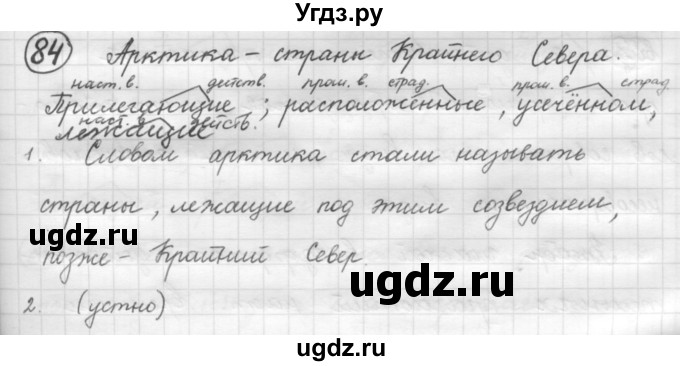 Угдз.ру
84 Арктика – страни Крайнего Севера.
наст. в. действ. прош. в. страд. прош. в. страд.
Прилегающие; расположенные, усечённом,
наст. в. действ.
лежащие
1. Словом арктика стали называть
страны, лежащие под этим созвездием,
ugdz.ru
ugdz.ru
позже – Крайний Север.
ugdz.ru
2. (устно)
ugdz.ru